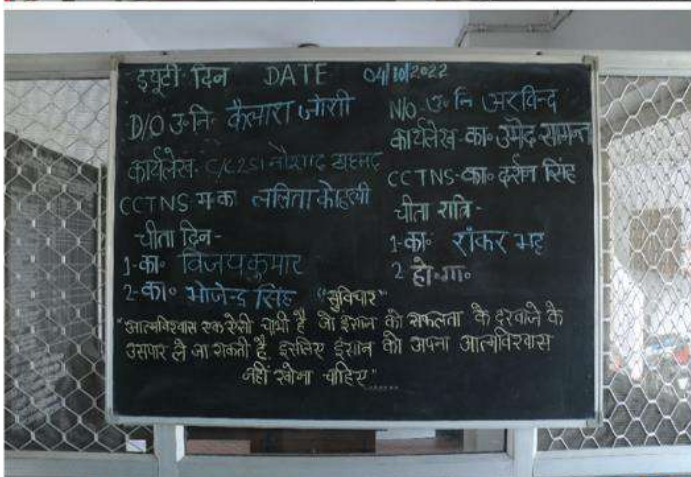 ड्यूटी दिन DATE 04/10/2022
D/O उ०नि० कैलाश जोशी
कार्यलेख. C/C2SI नौशाद अहमद
CCTNS म०का ललिता कोहली
चीता दिन-
1-का० विजय कुमार
2-का० भोजेन्द्र सिंह
N/O उ०नि अरविन्द
कार्यलेख-का० उमेद सामन्त
CCTNS-का० दर्शन सिंह
चीता रात्रि-
1-का० शंकर भट्ट
2 हो०गा०
"सुविचार"
"आत्मविश्वास एक ऐसी चाभी है जो इंसान को सफलता के दरवाजे के
उसपार ले जा सकती है. इसलिए इंसान को अपना आत्मविश्वास
नहीं खोना चाहिए"......